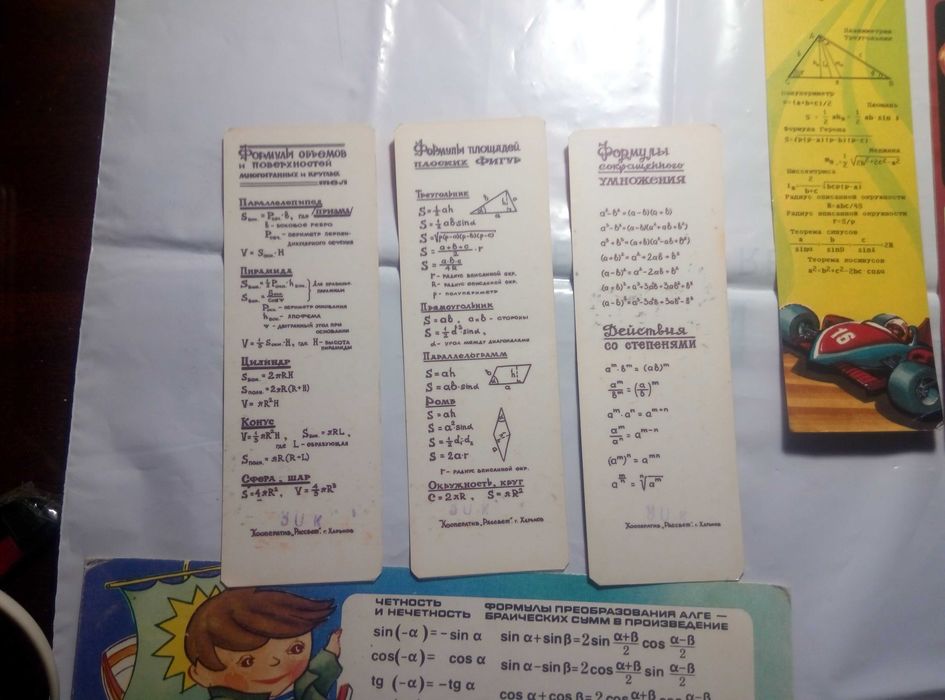 Формулы объемов
и поверхностей
многогранных и круглых
тел
Параллелепипед
Sбок. = Pсеч. · ℓ, где /призма/
ℓ - боковое ребро
Pсеч. - периметр перпен-
дикулярного сечения
V = Sосн. · H
Пирамида
Sбок. = ½ Pосн. · hбок. } для правильн.
пирамиды
Pосн. - периметр основания
hбок. - апофема
φ - двугранный угол при
основании
V = ⅓ Sосн. · H, где H - высота
пирамиды
Цилиндр
Sбок. = 2πRH
Sполн. = 2πR(R+H)
V = πR²H
Конус
V = ⅓πR²H, Sбок. = πRL,
где L - образующая
Sполн. = πR(R+L)
Сфера, шар
S = 4πR², V = 4/3 πR³
30 к
Кооператив „Рассвет", г. Харьков
Формулы площадей
плоских фигур
Треугольник
S = ½ ah
S = ½ ab sin α
S = √p(p-a)(p-b)(p-c)
S = (a+b+c)/2 · r
S = a·b·c/4R
r - радиус вписанной окр.
R - радиус описанной окр.
p - полупериметр
Прямоугольник
S = ab, a и b - стороны
S = ½ d² sin α,
α - угол между диагоналями
Параллелограмм
S = ah
S = ab · sin α
Ромб
S = ah
S = a² sin α
S = ½ d₁ · d₂
S = 2a·r
r - радиус вписанной окр.
Окружность, круг
C = 2πR, S = πR²
30 к
Кооператив „Рассвет", г. Харьков
Формулы
сокращенного
умножения
a² - b² = (a-b)(a+b)
a³ - b³ = (a-b)(a² + ab + b²)
a³ + b³ = (a+b)(a² - ab + b²)
(a+b)² = a² + 2ab + b²
(a-b)² = a² - 2ab + b²
(a+b)³ = a³ + 3a²b + 3ab² + b³
(a-b)³ = a³ - 3a²b + 3ab² - b³
Действия
со степенями
aᵐ · bᵐ = (ab)ᵐ
aᵐ/bᵐ = (a/b)ᵐ
aᵐ · aⁿ = aᵐ⁺ⁿ
aᵐ/aⁿ = aᵐ⁻ⁿ
(aᵐ)ⁿ = aᵐⁿ
a^(m/n) = ⁿ√aᵐ
30 к
Кооператив „Рассвет", г. Харьков
Планиметрия
Треугольник
A
B
Полупериметр
Площадь
S = 1/2 ahₐ = 1/2 ab sin
Формула Герона
Медиана
Биссектриса
Радиус описанной окружности
R=abc/4S
Радиус вписанной окружности
r=S/p
Теорема синусов
Теорема косинусов
a²=b²+c²-2bc cosα
16
ЧЕТНОСТЬ
И НЕЧЕТНОСТЬ
sin(-α) = - sin α
cos(-α) = cos α
tg (-α) = -tg α
ФОРМУЛЫ ПРЕОБРАЗОВАНИЯ АЛГЕ —
БРАИЧЕСКИХ СУММ В ПРОИЗВЕДЕНИЕ
sin α + sin β = 2 sin (α+β)/2 cos (α-β)/2
sin α - sin β = 2 cos (α+β)/2 sin (α-β)/2
cos α + cos β = 2 cos